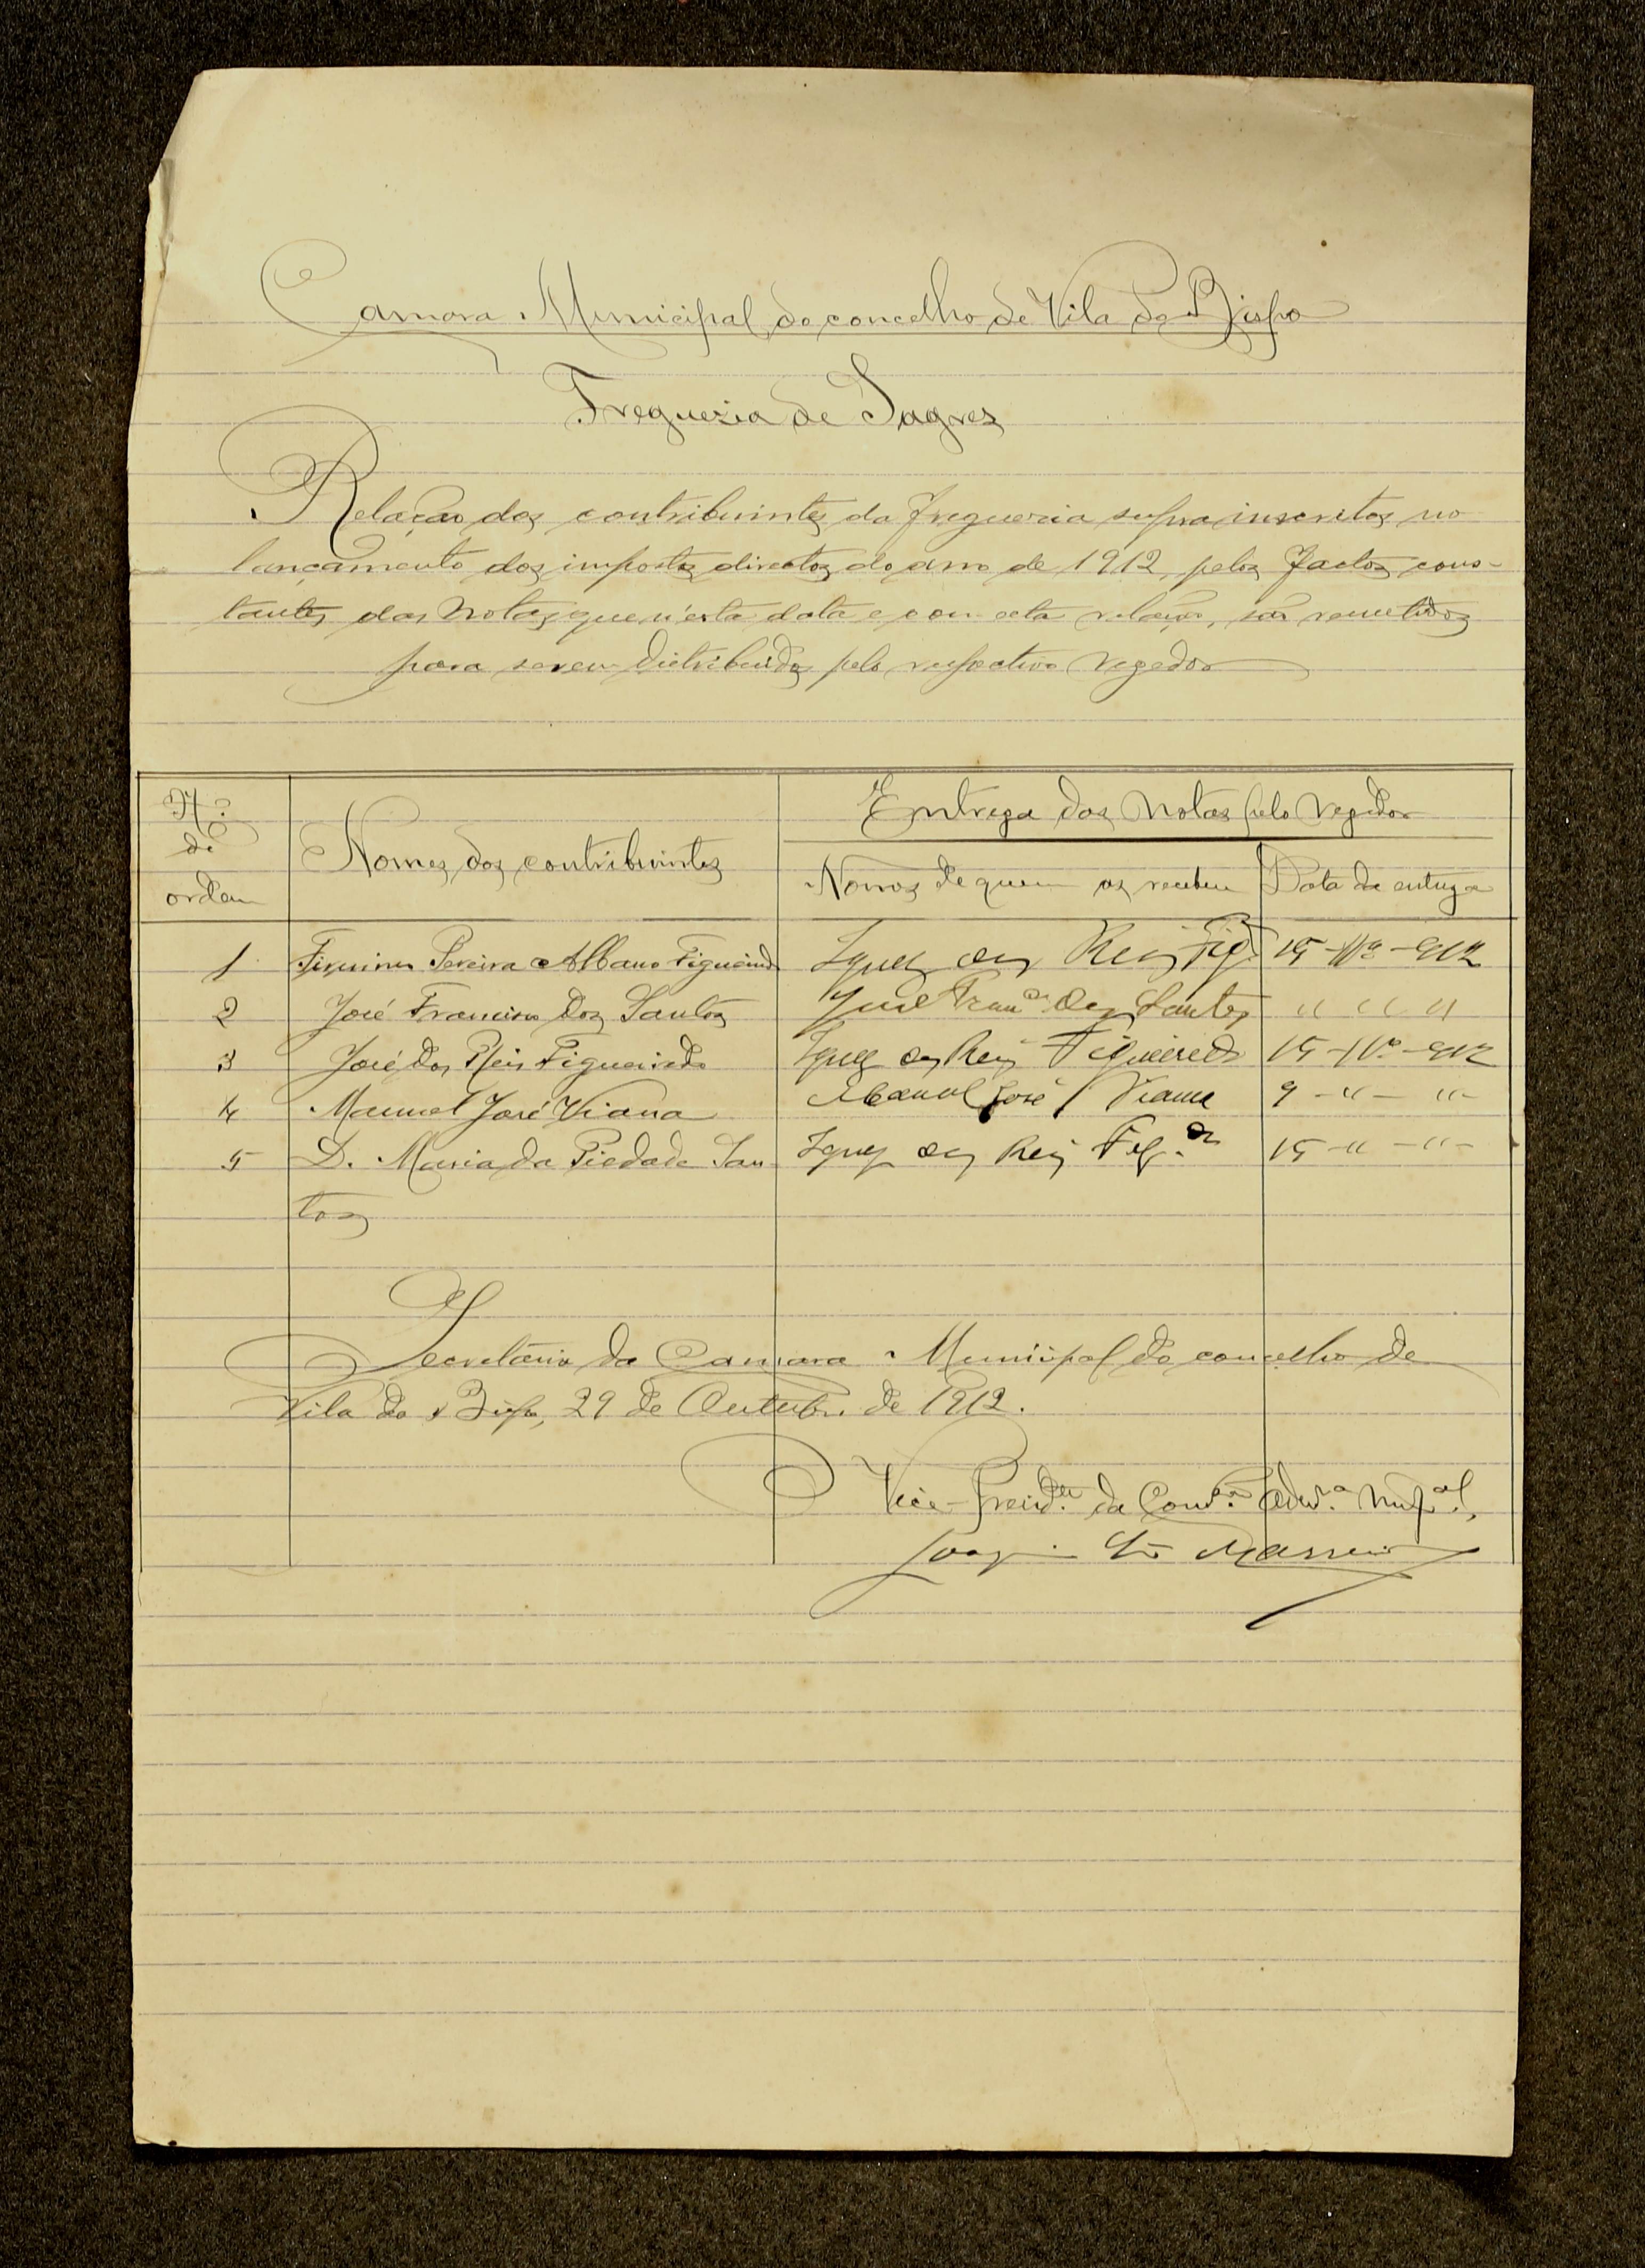 Camara Municipal do concelho de Vila do Bispo
Freguezia de Sagres
Relação dos contribuintes da freguezia supra inscritos no
lançamento dos impostos directos do ano de 1912, pelos factos cons-
tantes das notas que n'esta data e com esta relação, são remetidos
para serem distribuidos pelo respectivo regedor
N.º de ordem
Nomes dos contribuintes
Entrega das notas pelo regedor
Nomes de quem as recebeu
Data da entrega
1 Firmino Pereira Albano Figueiredo dos Reis Fig. 15-11º-912
2 José Francisco dos Santos José Fran.co dos Santos " " "
3 José dos Reis Figueiredo dos Reis Figueiredo 15-11º-912
4 Manuel José Viana Manoel José Viana 9 - " - "
5 D. Maria da Piedade San- dos Reis Fig.do 15 - " - "
tos
Secretária da Camara Municipal do concelho de
Vila do Bispo, 29 de Outubro de 1912.
O Vice-Presid.te da Com.ão Adm.a Mup.al,